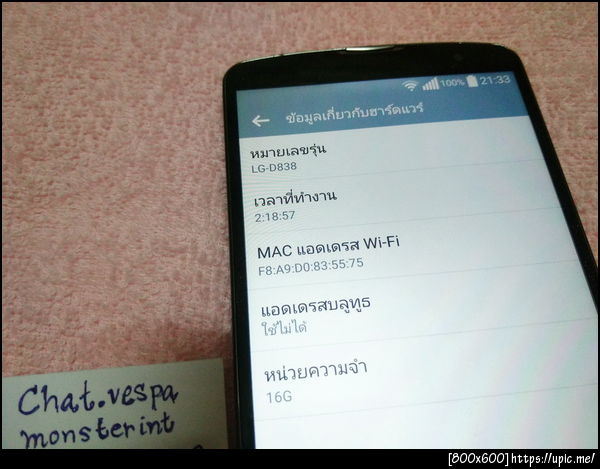 100% 21:33
ข้อมูลเกี่ยวกับฮาร์ดแวร์
หมายเลขรุ่น
LG-D838
เวลาที่ทำงาน
2:18:57
MAC แอดเดรส Wi-Fi
F8:A9:D0:83:55:75
แอดเดรสบลูทูธ
ใช้ไม่ได้
หน่วยความจำ
16G
Chat.vespa
monsterint
[800x600] https://upic.me/